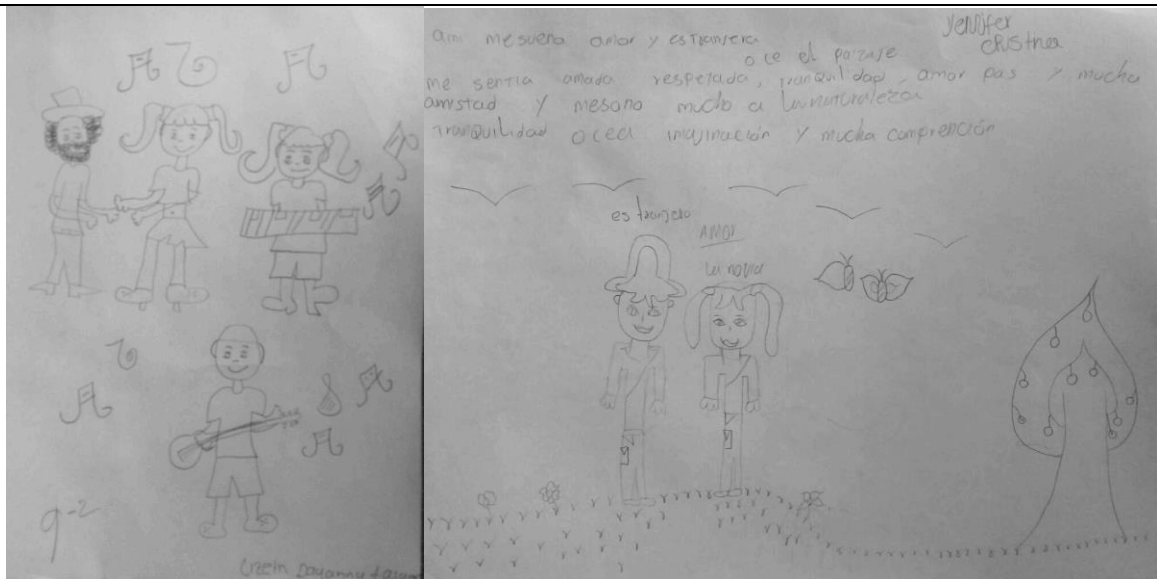 9-2
Yenifer
cristner
ami mesuena amor y estranjera
oce el paizaje
me sentia amada respetada, tranquilidad, amor pas y mucha
amistad y mesona mucho a la naturaleza
tranquilidad ocea imajinación y mucha comprención
estranjero
AMOR
la novia